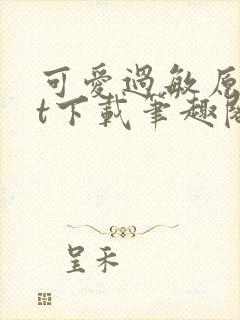 可愛過敏原
t下載筆趣閣
呈禾